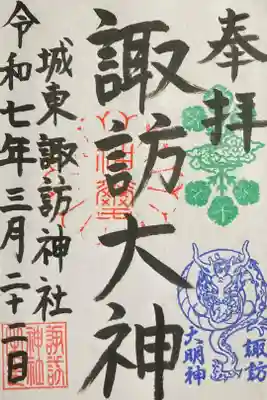 奉拝
諏訪大神
城東諏訪神社
令和七年三月二十二日
諏訪
大明神
諏訪
神社